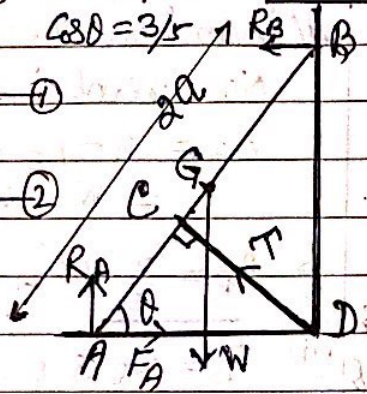 Cosθ = 3/5
R_B
B
①
2a
②
G
C
T
R_A
θ
D
A
F_A
W